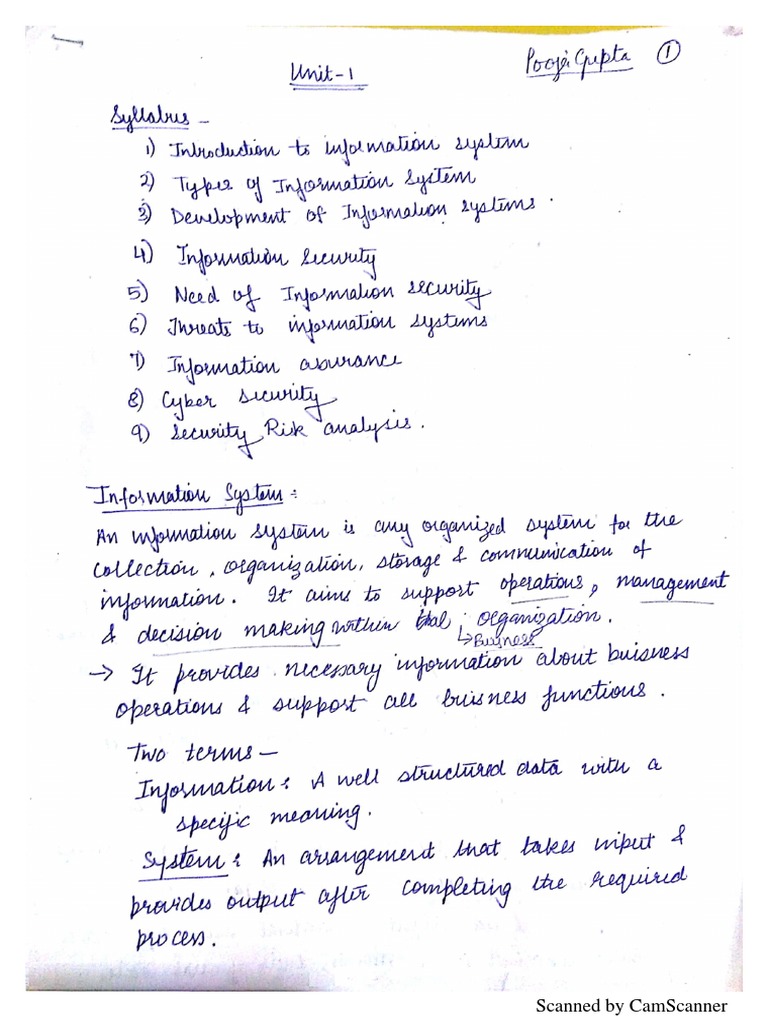 Unit-1
Pooja Gupta 1
Syllabus -
1) Introduction to information system
2) Types of Information System
3) Development of Information systems.
4) Information Security
5) Need of Information security
6) Threats to information systems
7) Information assurance
8) Cyber security
9) Security Risk analysis.
Information System:
An information system is any organized system for the
collection, organization, storage & communication of
information. It aims to support operations, management
& decision making within organization.
↳ Business
→ It provides necessary information about buisness
operations & support all buisness functions.
Two terms -
Information: A well structured data with a
specific meaning.
System: An arrangement that takes input &
provides output after completing the required
process.
Scanned by CamScanner